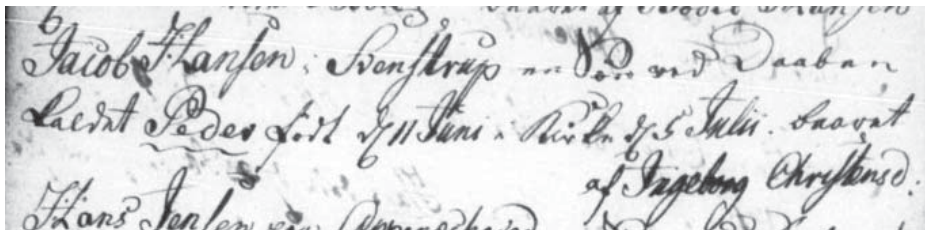 baaret af Hansen
6
Jacob Hansen i Svenstrup en Søn ved Daaben
kaldet Peder født d 11 Juni i Kirke d 5 Julii. baaret
af Ingeborg Christensd:
Hans Jensen